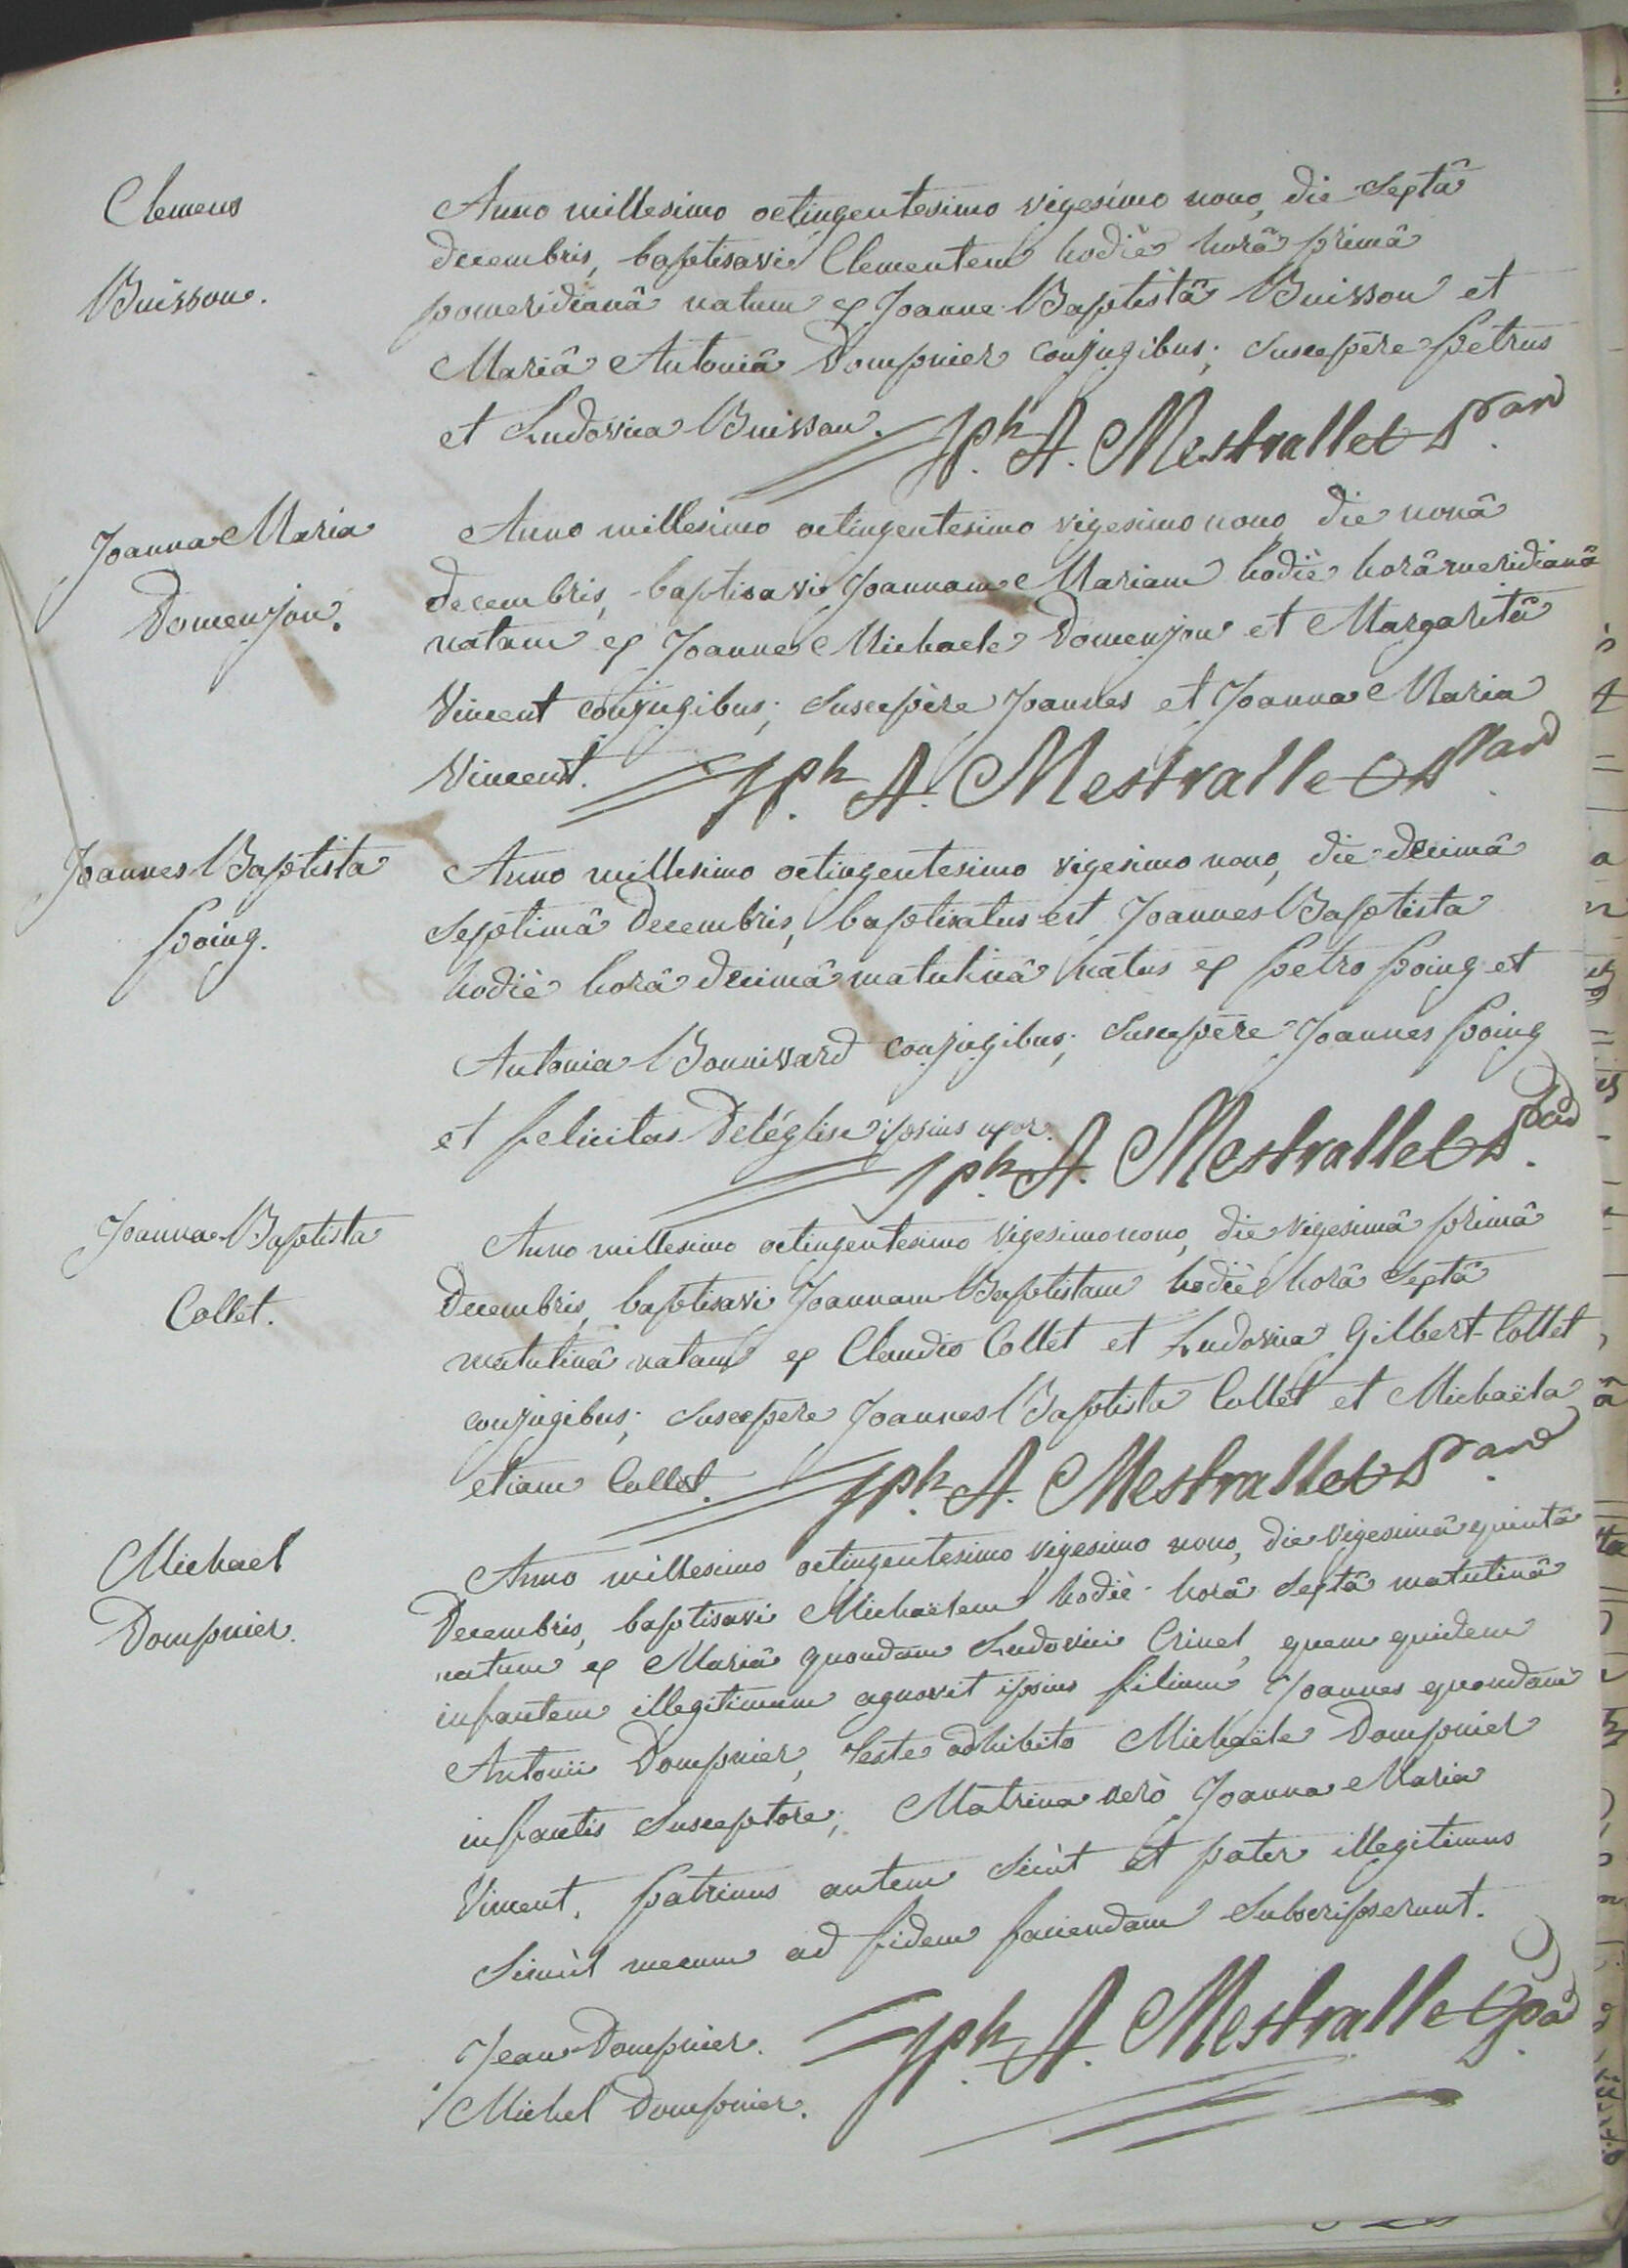 Clemens
Buisson.
Anno millesimo octingentesimo vigesimo nono, die sextâ
decembris, baptisavi Clementem hodiè horâ primâ
pomeridianâ natum ex Joanne Baptistâ Buisson et
Mariâ Antoniâ Dompnier conjugibus; suscepêre petrus
et Ludovica Buisson.
Jph. A. Mestrallet
Joanna Maria
Domenjon.
Anno millesimo octingentesimo vigesimo nono die nonâ
decembris, baptisavi Joannam Mariam hodiè horâ meridianâ
natam ex Joanne Michaele Domenjon et Margaritâ
Vincent conjugibus; suscepêre Joannes et Joanna Maria
Vincent.
Jph. A. Mestrallet
Joannes Baptista
poing.
Anno millesimo octingentesimo vigesimo nono, die decimâ
septimâ Decembris, baptisatus est Joannes Baptista
hodiè horâ decimâ matutinâ natus ex petro poing et
Antonia Bonnivard conjugibus; suscepêre Joannes poing
et felicitas Deléglise ipsius uxor.
Jph. A. Mestrallet
Joanna Baptista
Collet.
Anno millesimo octingentesimo vigesimo nono, die vigesimâ primâ
Decembris, baptisavi Joannam Baptistam hodiè horâ sextâ
matutinâ natam ex Claudio Collet et Ludovica Gilbert-Collet
conjugibus; suscepêre Joannes Baptista Collet et Michaëla
etiam Collet.
Jph. A. Mestrallet
Michael
Dompnier.
Anno millesimo octingentesimo vigesimo nono, die vigesimâ quintâ
Decembris, baptisavi Michaëlem hodiè horâ sextâ matutinâ
natum ex Mariâ quondam Ludovici Crinel, quem quidem
infantem illegitimum agnovit ipsius filium Joannes quondam
Antonii Dompnier, teste adhibito Michaële Dompnier
infantis susceptore; Matrina verò Joanna Maria
Vincent. patrinus autem sicùt et pater illegitimus
simùl mecum ad fidem faciendam subscripserunt.
Jean Dompnier.
Jph. A. Mestrallet
Michel Dompnier.